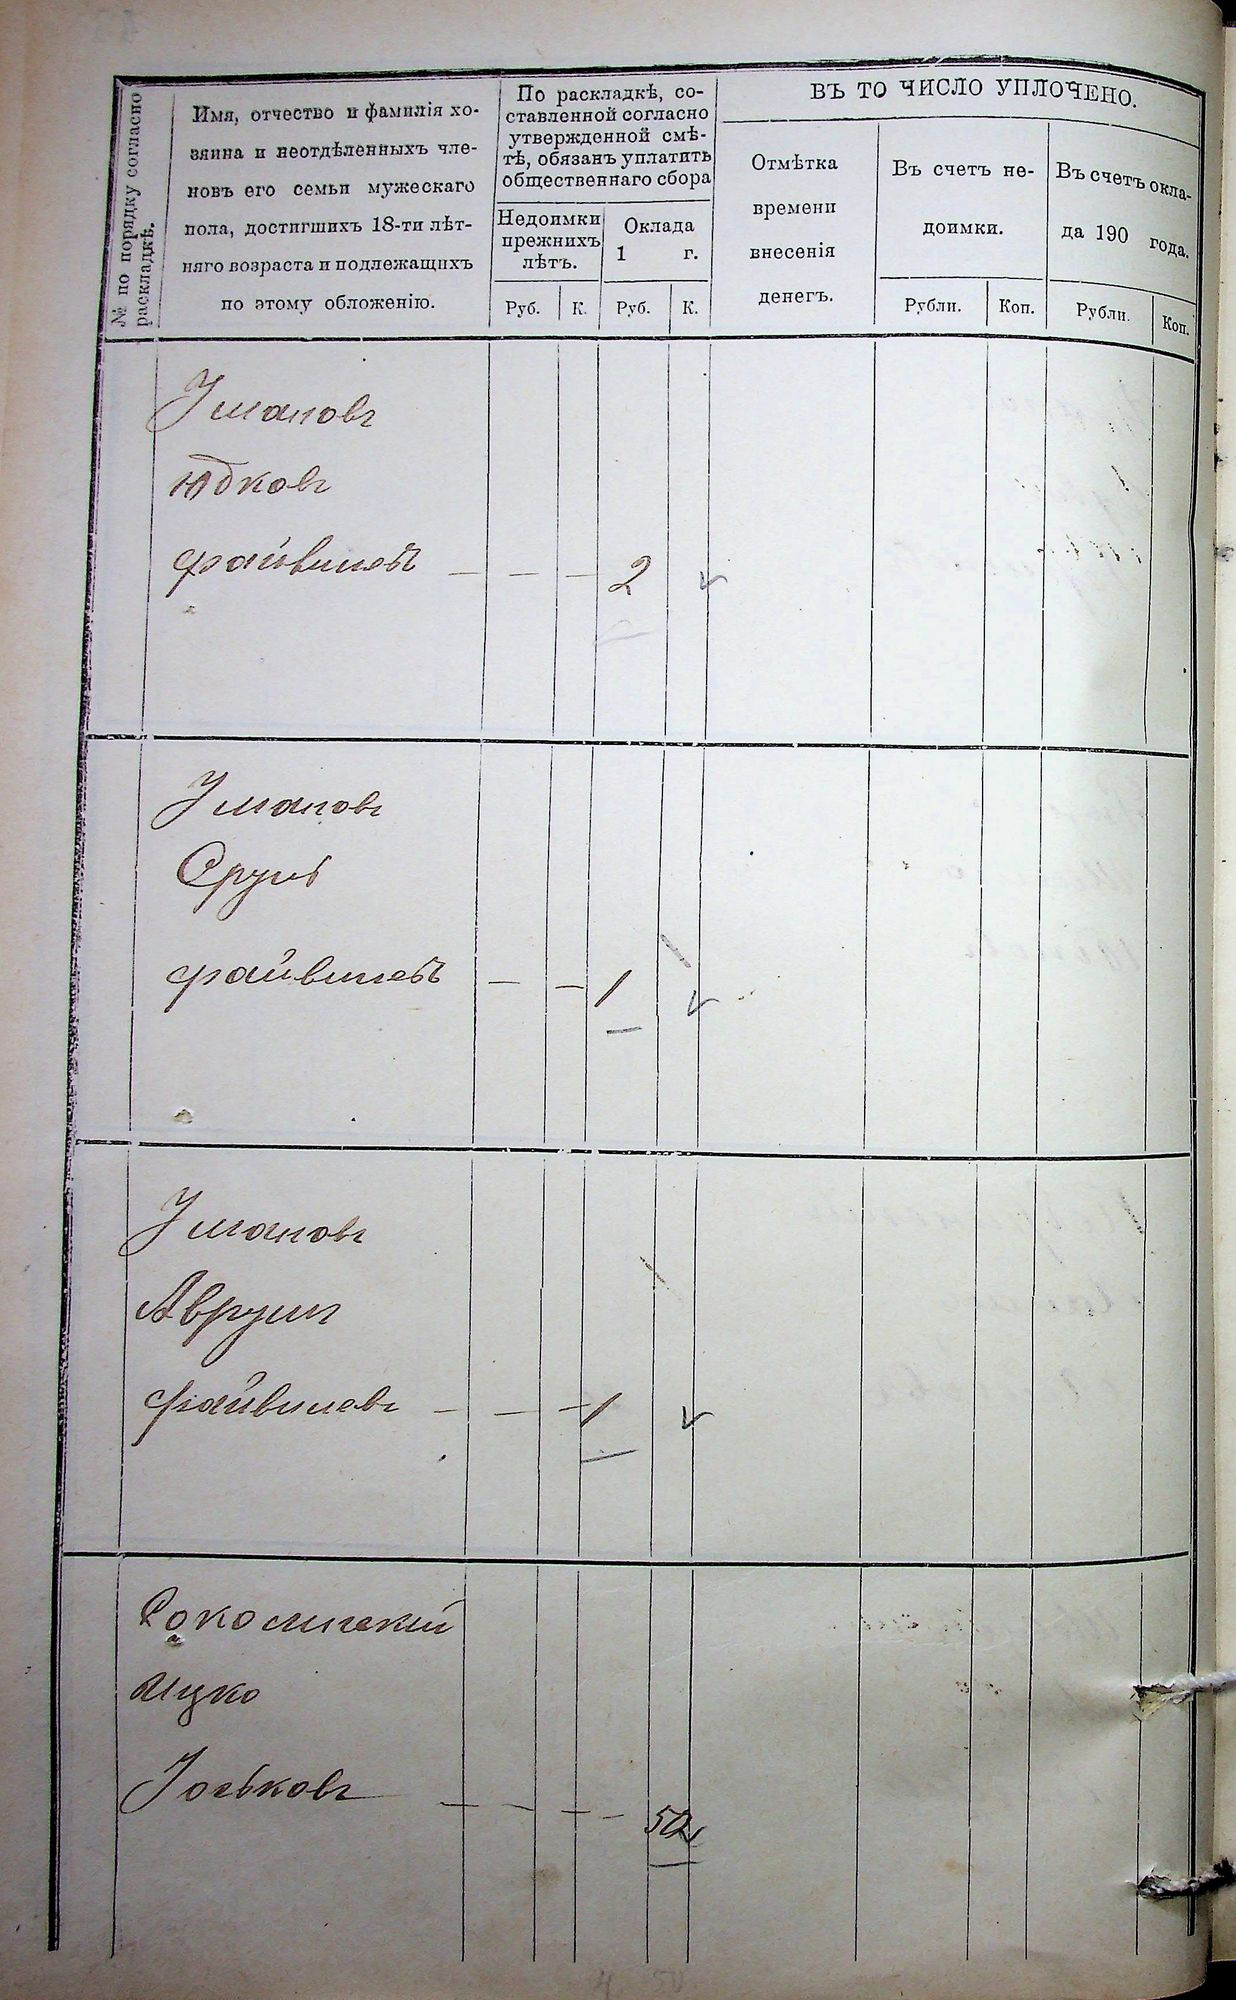 № по порядку согласно
раскладкѣ.
Имя, отчество и фамилія хо-
зяина и неотдѣленныхъ чле-
новъ его семьи мужескаго
пола, достигшихъ 18-ти лѣт-
няго возраста и подлежащихъ
по этому обложенію.
По раскладкѣ, со-
ставленной согласно
утвержденной смѣ-
тѣ, обязанъ уплатить
общественнаго сбора
Недоимки
прежнихъ
лѣтъ.
Руб. К.
Оклада
1 г.
Руб. К.
ВЪ ТО ЧИСЛО УПЛОЧЕНО.
Отмѣтка
времени
внесенія
денегъ.
Въ счетъ не-
доимки.
Рубли. Коп.
Въ счетъ окла-
да 190 года.
Рубли. Коп.
Умановъ
Юдковъ
Файвишевъ — — — 2
Умановъ
Сруль
Файвишевъ — — 1
Умановъ
Аврумъ
Файвишевъ — — — 1
Ицко
Іоськовъ — — — — 50
4 50